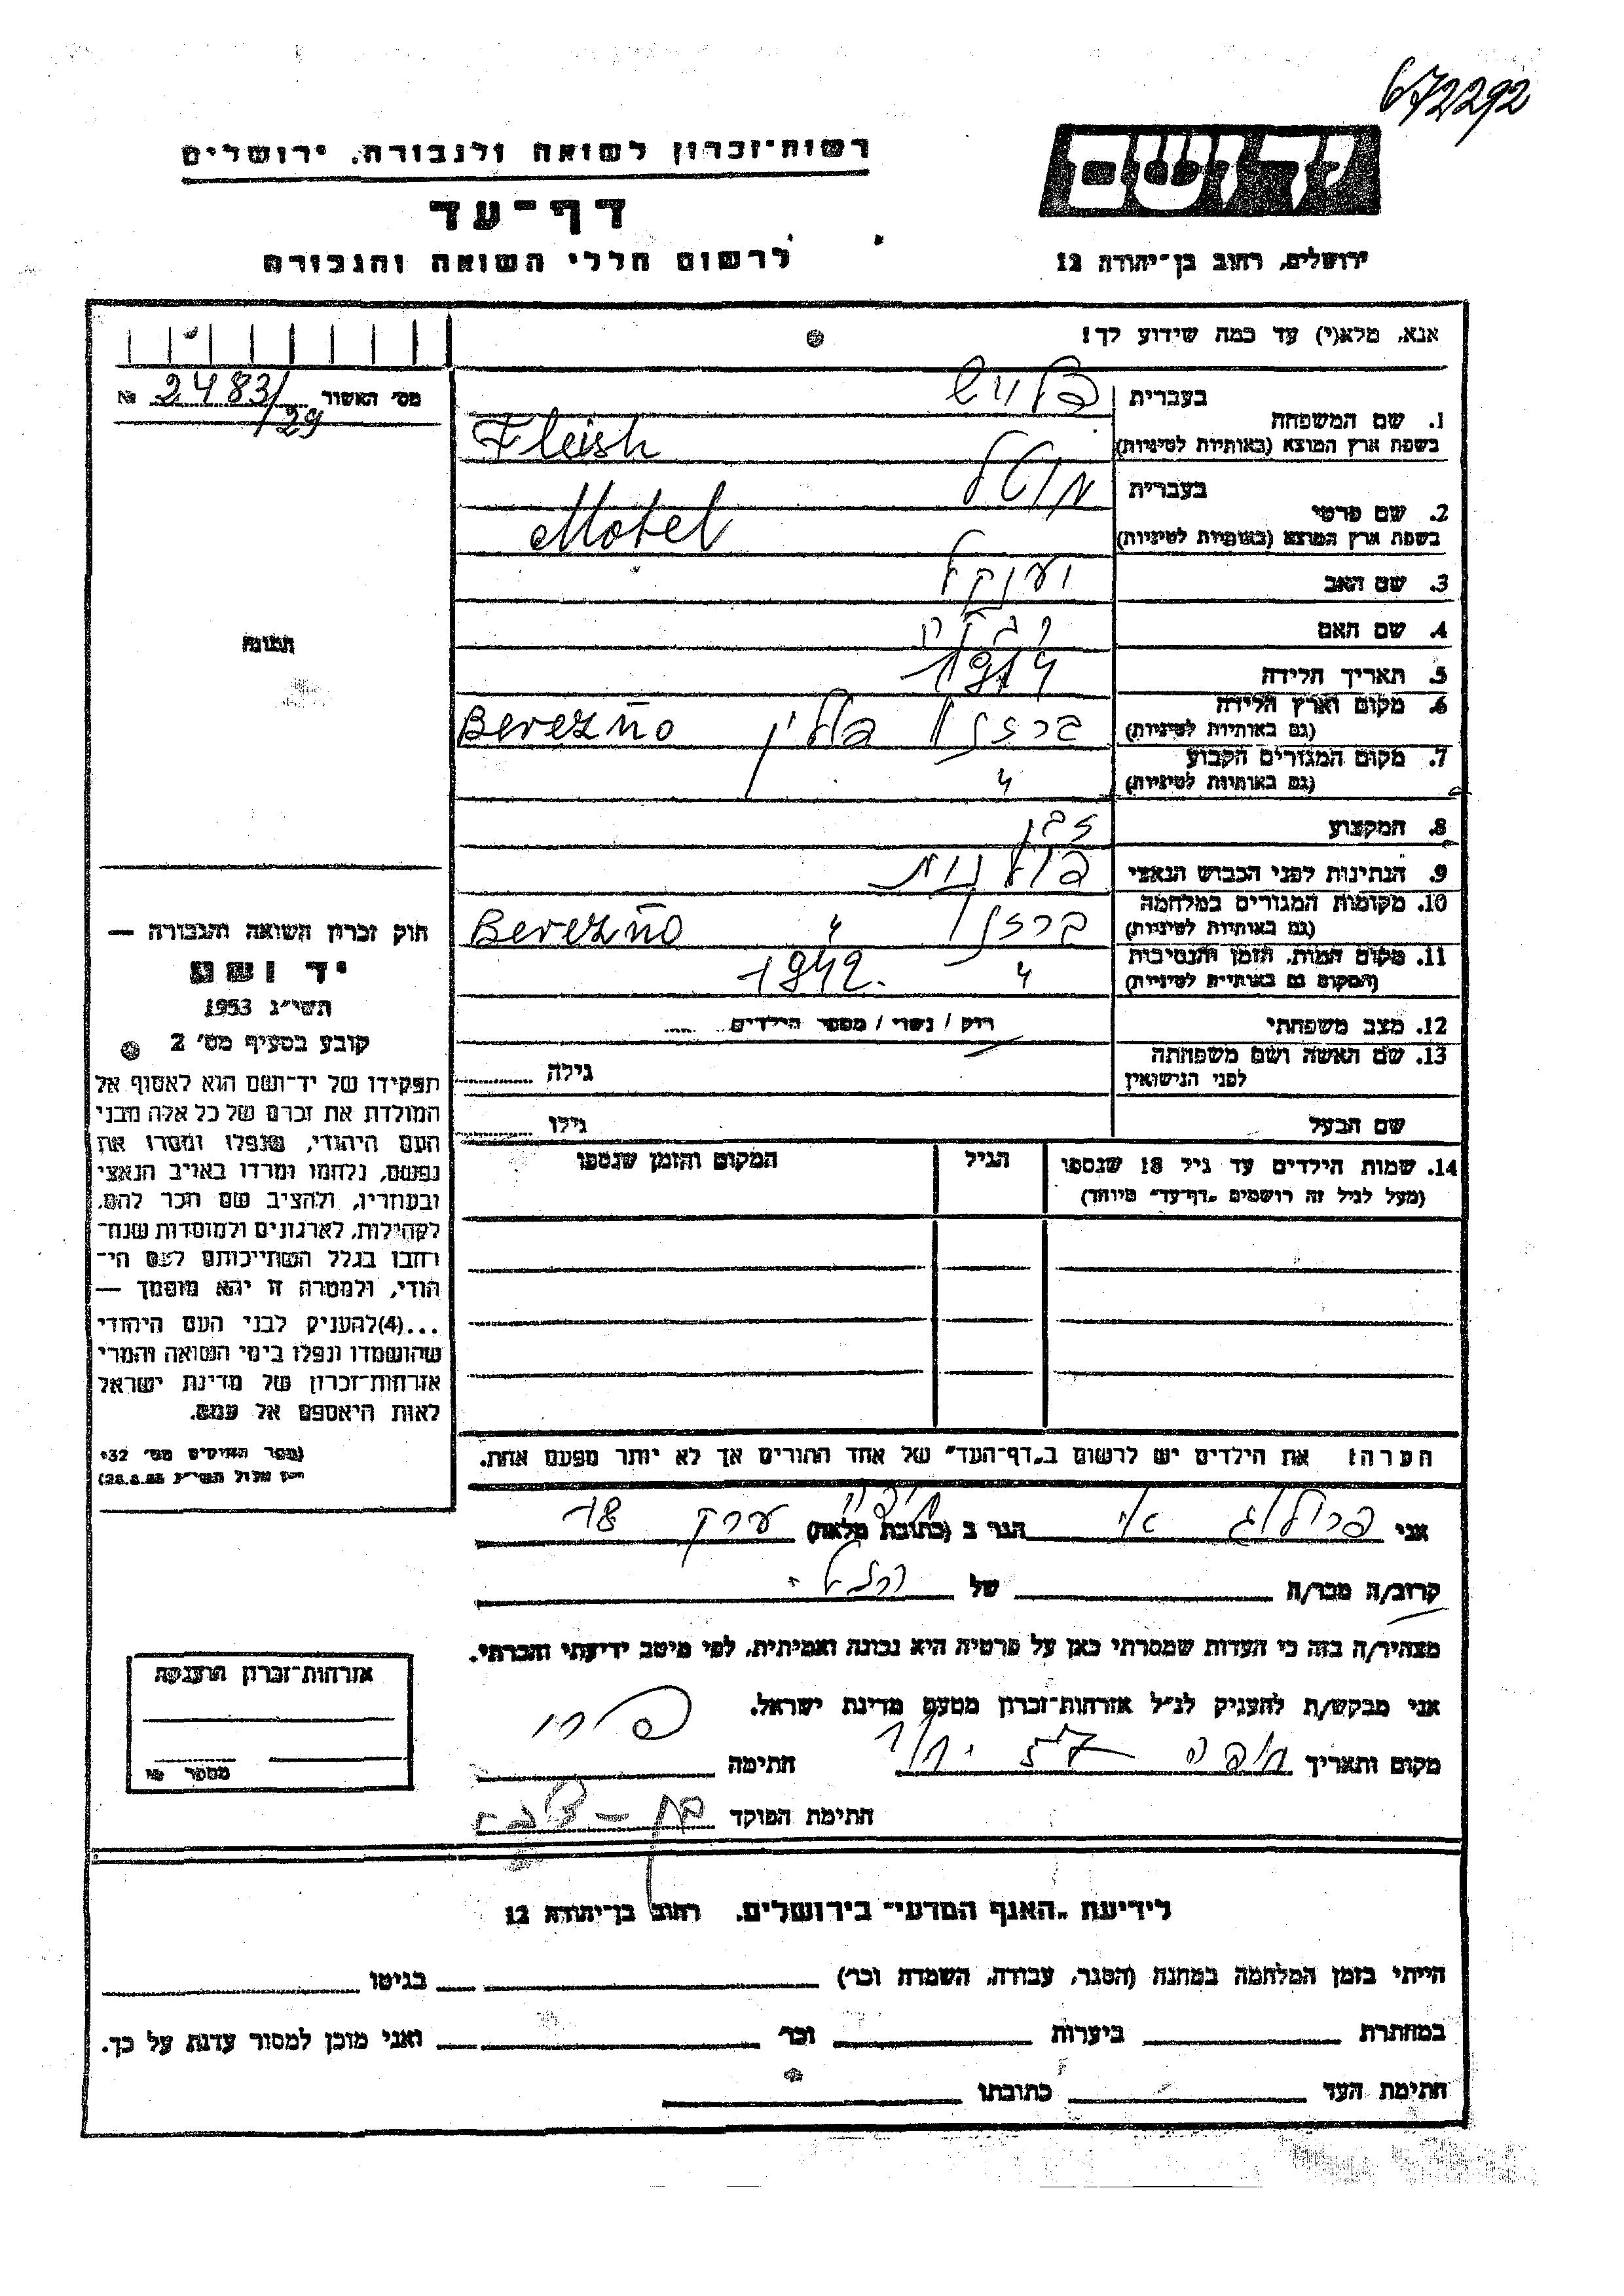 672292
רשות־זכרון לשואה ולגבורה, ירושלים
יד ושם
דף־עד
לרשום חללי השואה והגבורה
ירושלים, רחוב בן־יהודה 12
אנא, מלא(י) עד כמה שידוע לך!
מס' האשור 2483/29 №
1. שם המשפחה
בעברית פלייש
בשפת ארץ המוצא (באותיות לטיניות) Fleish
2. שם פרטי
בעברית מוטל
בשפת ארץ המוצא (באותיות לטיניות) Motel
3. שם האב יענקל
4. שם האם
5. תאריך הלידה 1914
6. מקום וארץ הלידה ברזנו פולין Berezno
(גם באותיות לטיניות)
7. מקום המגורים הקבוע
(גם באותיות לטיניות) "
8. המקצוע
9. הנתינות לפני הכבוש הנאצי פולנית
10. מקומות המגורים במלחמה ברזנו " Berezno
(גם באותיות לטיניות)
11. מקום המות, הזמן והנסיבות " 1942.
(המקום גם באותיות לטיניות)
12. מצב משפחתי רוק / נשוי / מספר הילדים
13. שם האשה ושם משפחתה
לפני הנישואין גילה
שם הבעל גילו
14. שמות הילדים עד גיל 18 שנספו הגיל המקום והזמן שנספו
(מעל לגיל זה רושמים "דף־עד" מיוחד)
הערה: את הילדים יש לרשום ב"דף־העד" של אחד ההורים אך לא יותר מפעם אחת.
תמונה
חוק זכרון השואה והגבורה —
יד ושם
תשי"ג 1953
קובע בסעיף מס' 2
תפקידו של יד־ושם הוא לאסוף אל
המולדת את זכרם של כל אלה מבני
העם היהודי, שנפלו ומסרו את
נפשם, נלחמו ומרדו באויב הנאצי
ובעוזריו, ולהציב שם וזכר להם,
לקהילות, לארגונים ולמוסדות שנח־
רבו בגלל השתייכותם לעם הי־
הודי, ולמטרה זו יהא מוסמך —
...(4)להעניק לבני העם היהודי
שהושמדו ונפלו בימי השואה והמרי
אזרחות־זכרון של מדינת ישראל
לאות היאספם אל עמם.
(ספר החוקים מס' 132
אני הגר ב (כתובת מלאה) חיפה 18
קרוב/ה מכר/ה של
מצהיר/ה בזה כי העדות שמסרתי כאן על פרטיה היא נכונה ואמיתית, לפי מיטב ידיעתי והכרתי.
אני מבקש/ת להעניק לנ"ל אזרחות־זכרון מטעם מדינת ישראל.
מקום ותאריך חיפה חתימה
חתימת הפוקד
אזרחות־זכרון הוענקה
מספר
לידיעת "האגף המדעי" בירושלים, רחוב בן־יהודה 12
הייתי בזמן המלחמה במחנה (הסגר, עבודה, השמדה וכר') בגיטו
במחתרת ביערות וכר' ואני מוכן למסור עדות על כך.
חתימת העד כתובתו